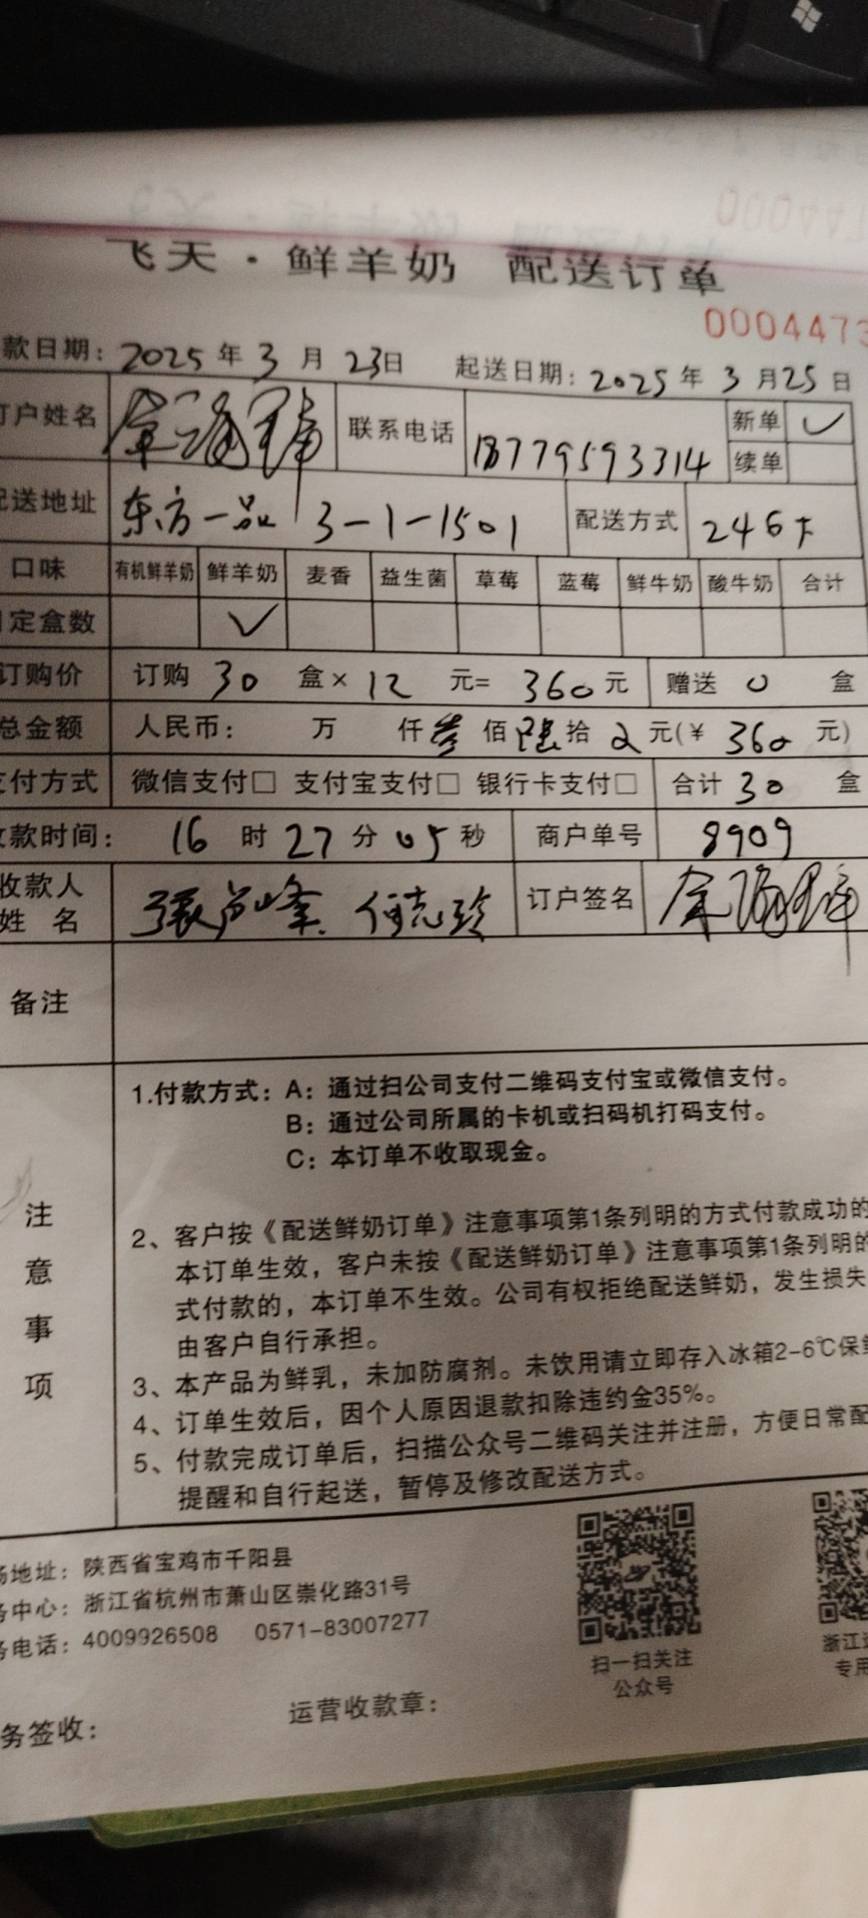 飞天·鲜羊奶 配送订单
0004473
款日期：2025年3月23日 起送日期：2025年3月25日
订户姓名 联系电话 18779593314 新单 ✓
续单
配送地址 东方一品 3-1-1501 配送方式 246下
口味 有机鲜羊奶 鲜羊奶 麦香 益生菌 草莓 蓝莓 鲜牛奶 酸牛奶 合计
定盒数 ✓
订购价 订购 30 盒× 12 元= 360元 赠送 0 盒
总金额 人民币： 万 仟叁佰陆拾 元(￥ 360 元)
支付方式 微信支付□ 支付宝支付□ 银行卡支付□ 合计30 盒
款时间： 16 时 27 分 05 秒 商户单号 8909
收款人姓名 何志玲 订户签名
备注
注意事项
1.付款方式：A：通过扫公司支付二维码支付宝或微信支付。
B：通过公司所属的卡机或扫码机打码支付。
C：本订单不收取现金。
2、客户按《配送鲜奶订单》注意事项第1条列明的方式付款成功的
本订单生效，客户未按《配送鲜奶订单》注意事项第1条列明的
式付款的，本订单不生效。公司有权拒绝配送鲜奶，发生损失
由客户自行承担。
3、本产品为鲜乳，未加防腐剂。未饮用请立即存入冰箱2-6℃保鲜
4、订单生效后，因个人原因退款扣除违约金35%。
5、付款完成订单后，扫描公众号二维码关注并注册，方便日常配
提醒和自行起送，暂停及修改配送方式。
地址：陕西省宝鸡市千阳县
务中心：浙江省杭州市萧山区崇化路31号
务电话：4009926508 0571-83007277
扫一扫关注
公众号
浙江
专用
务签收： 运营收款章：